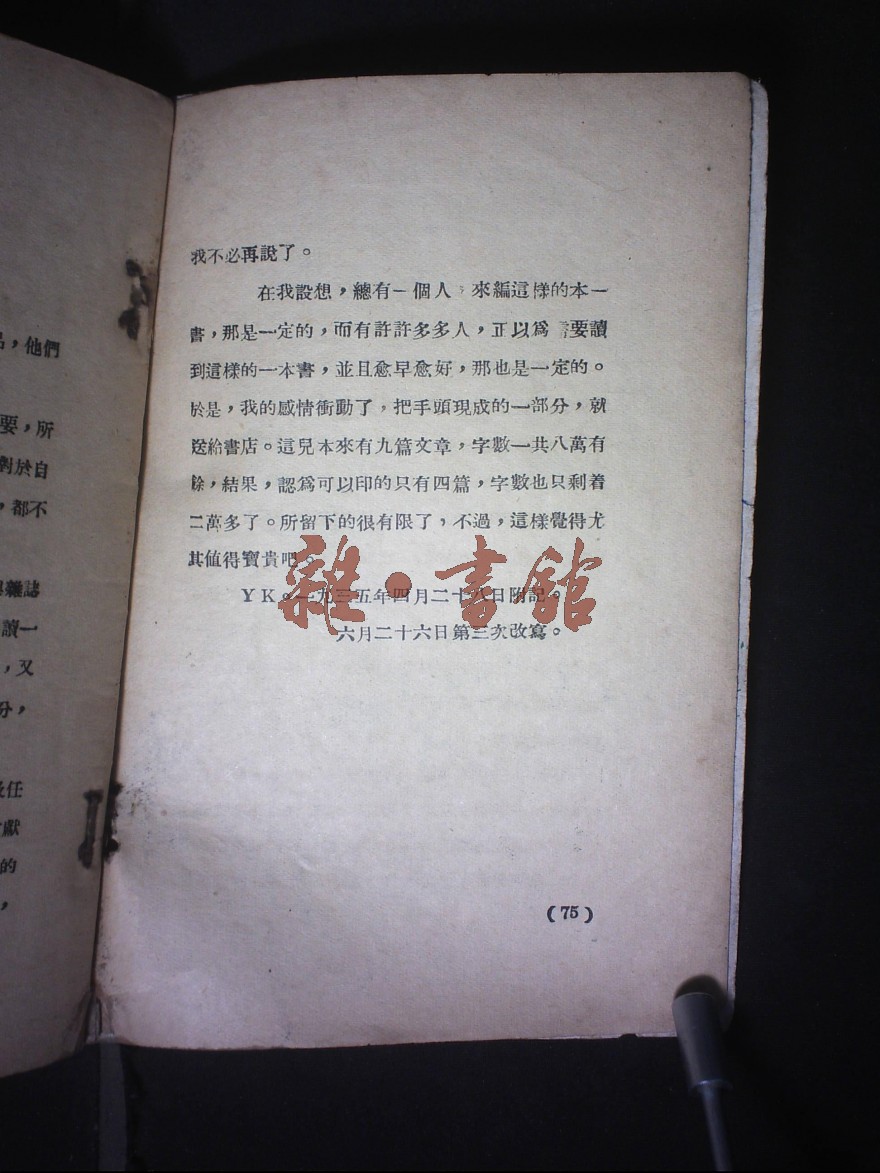 品，他們
要，所
對於自
，都不
與雜誌
讀一
，又
分，
及任
獻
的
，
我不必再說了。
在我設想，總有一個人，來編這樣的本一
書，那是一定的，而有許許多多人，正以爲要讀
到這樣的一本書，並且愈早愈好，那也是一定的。
於是，我的感情衝動了，把手頭現成的一部分，就
送給書店。這兒本來有九篇文章，字數一共八萬有
餘，結果，認爲可以印的只有四篇，字數也只剩着
二萬多了。所留下的很有限了，不過，這樣覺得尤
其值得寶貴吧。
YK。一九三五年四月二十八日附記。
六月二十六日第三次改寫。
雜·書館
(75)